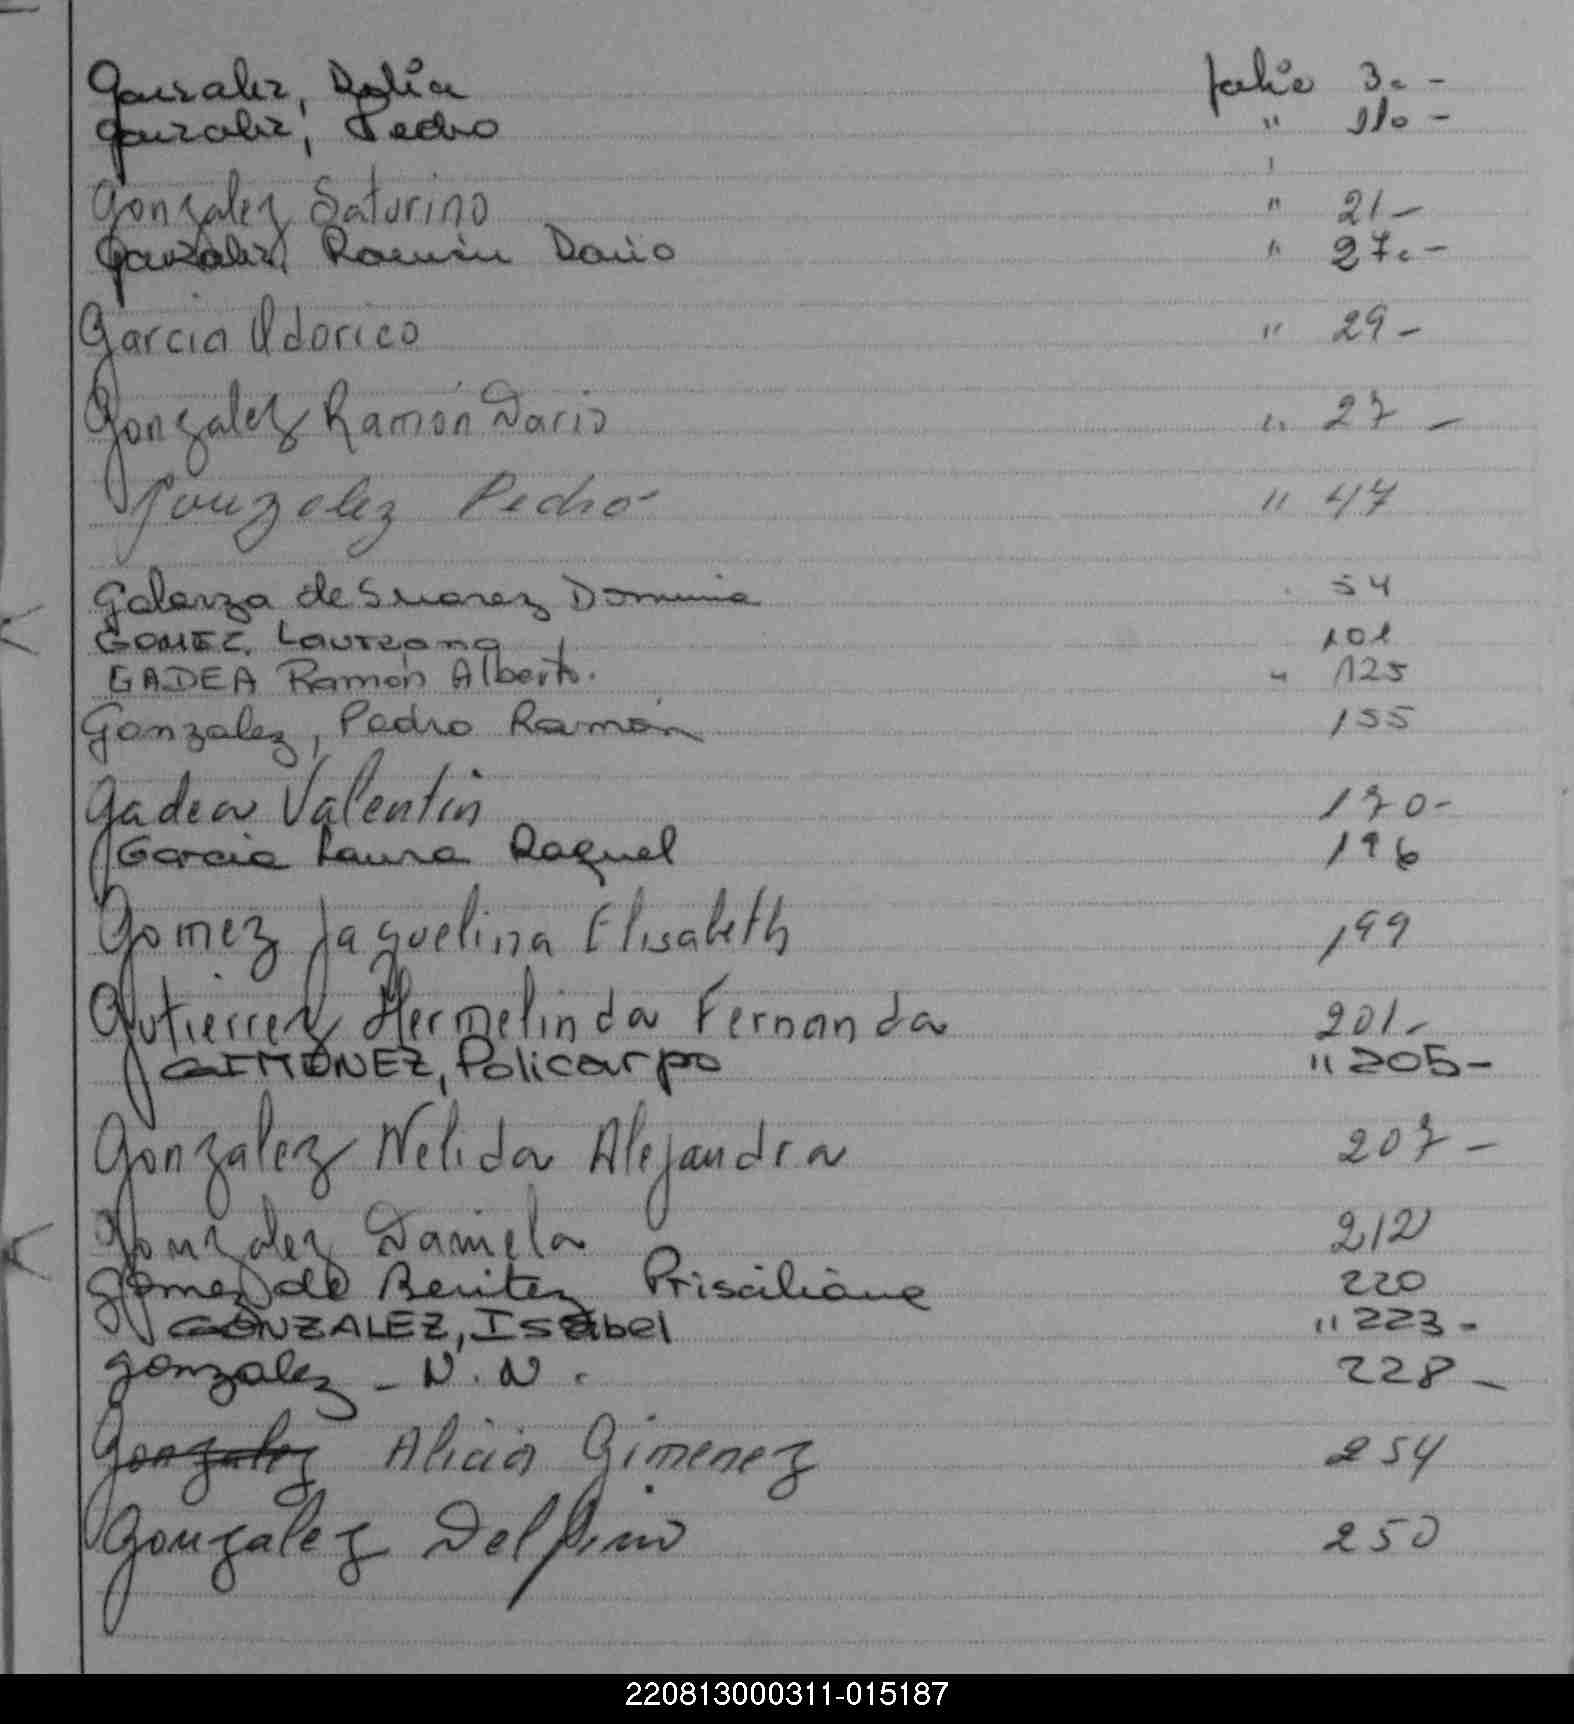 Gonzalez, Delia folio 3. -
Gonzalez, Pedro " 110 -
Gonzalez Saturino " 21 -
Gonzalez, Ramón Dario " 27. -
Garcia Odorico " 29 -
Gonzalez Ramón Dario " 27 -
Gonzalez Pedro " 47
Galarza de Suarez Domina 54
GOMEZ, Laureana 101
GADEA Ramón Alberto. " 125
Gonzalez, Pedro Ramón 155
Gadea Valentin 170 -
Garcia Laura Raquel 196
Gomez Jaquelina Elisabeth 199
Gutierrez Hermelinda Fernanda 201 -
GIMENEZ, Policarpo " 205 -
Gonzalez Nelida Alejandra 207 -
Gonzalez Daniela 212
Gomez de Benitez Prisciliana 220
GONZALEZ, Isabel " 223 -
Gonzalez - N. N. 228 -
Gonzalez Alicia Gimenez 254
Gonzalez Delfino 250
220813000311-015187